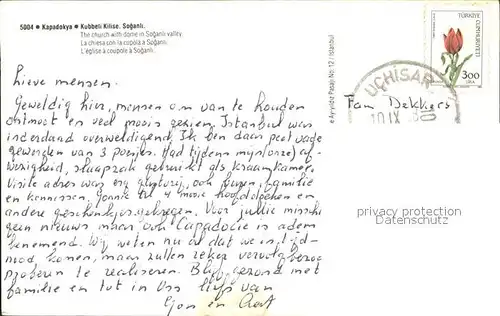 5004 • Kapadokya • Kubbeli Kilise. Soğanlı.
The church with dome in Soğanlı valley.
La chiesa con la cupola à Soğanlı.
L'église à coupole à Soğanlı.
Lieve mensen.
Geweldig hier, mensen om van te houden
ontmoet en veel moois gezien, Istanbul was
inderdaad overweldigend. Ik ben daar peet
geworden van 3 poesjes. Had tijdens mijn (onze) af-
wezigheid, slaapzak gebruikt als kraamkamer.
Visite adres was erg, ook buren, familie
en kennissen, 4 mooie hoofddoeken en
andere geschenkjes gekregen. Voor jullie misschi
geen nieuws maar ook Capadocië is adem
benemend. Wij weten nu al dat we is tijd-
nood komen, maar zullen zeker vervolg bezoe
proberen te realiseren. Blijf gezond met
familie en tot in Oss liefs van
en
TÜRKİYE
CUMHURİYETİ
300
LİRA
UÇHİSAR
10 IX
Fam Dekkers
Pasajı No: 12 / İstanbul
privacy protection
Datenschutz